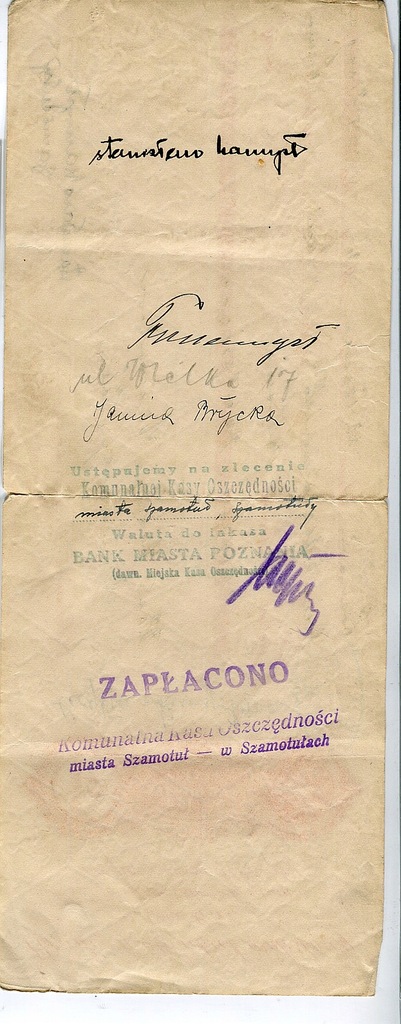 ul Wielka 17
Janina Brycka
Ustępujemy na zlecenie
Komunalnej Kasy Oszczędności
miasta Szamotuł, Szamotuły
Waluta do inkasa
BANK MIASTA POZNANIA
(dawn. Miejska Kasa Oszczędności
ZAPŁACONO
Komunalna Kasa Oszczędności
miasta Szamotuł — w Szamotułach